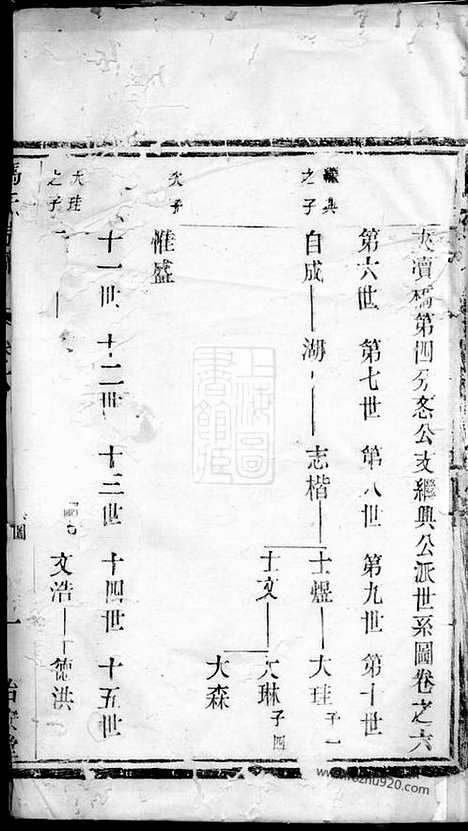 夾瀆橋第四分㤅公支繼興公派世系圖卷之六
第六世 第七世 第八世 第九世 第十世
繼興之子 自成 湖 志楷 士煜 大珪 子一
士文 大琳 子四
大森
次子 惟盛
十一世 十二世 十三世 十四世 十五世
大珪之子一 文浩 德洪
上海圖書館藏